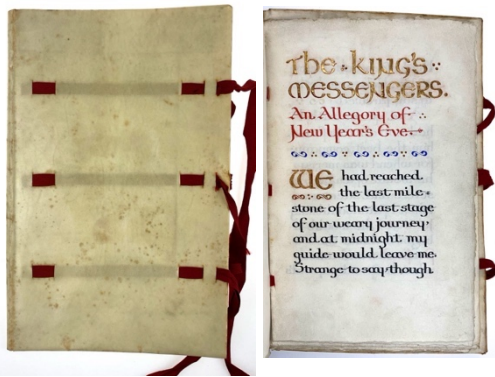 The King's
Messengers.
An Allegory of
New Year's Eve.
We had reached
the last mile-
stone of the last stage
of our weary journey,
and at midnight my
guide would leave me.
Strange to say, though,